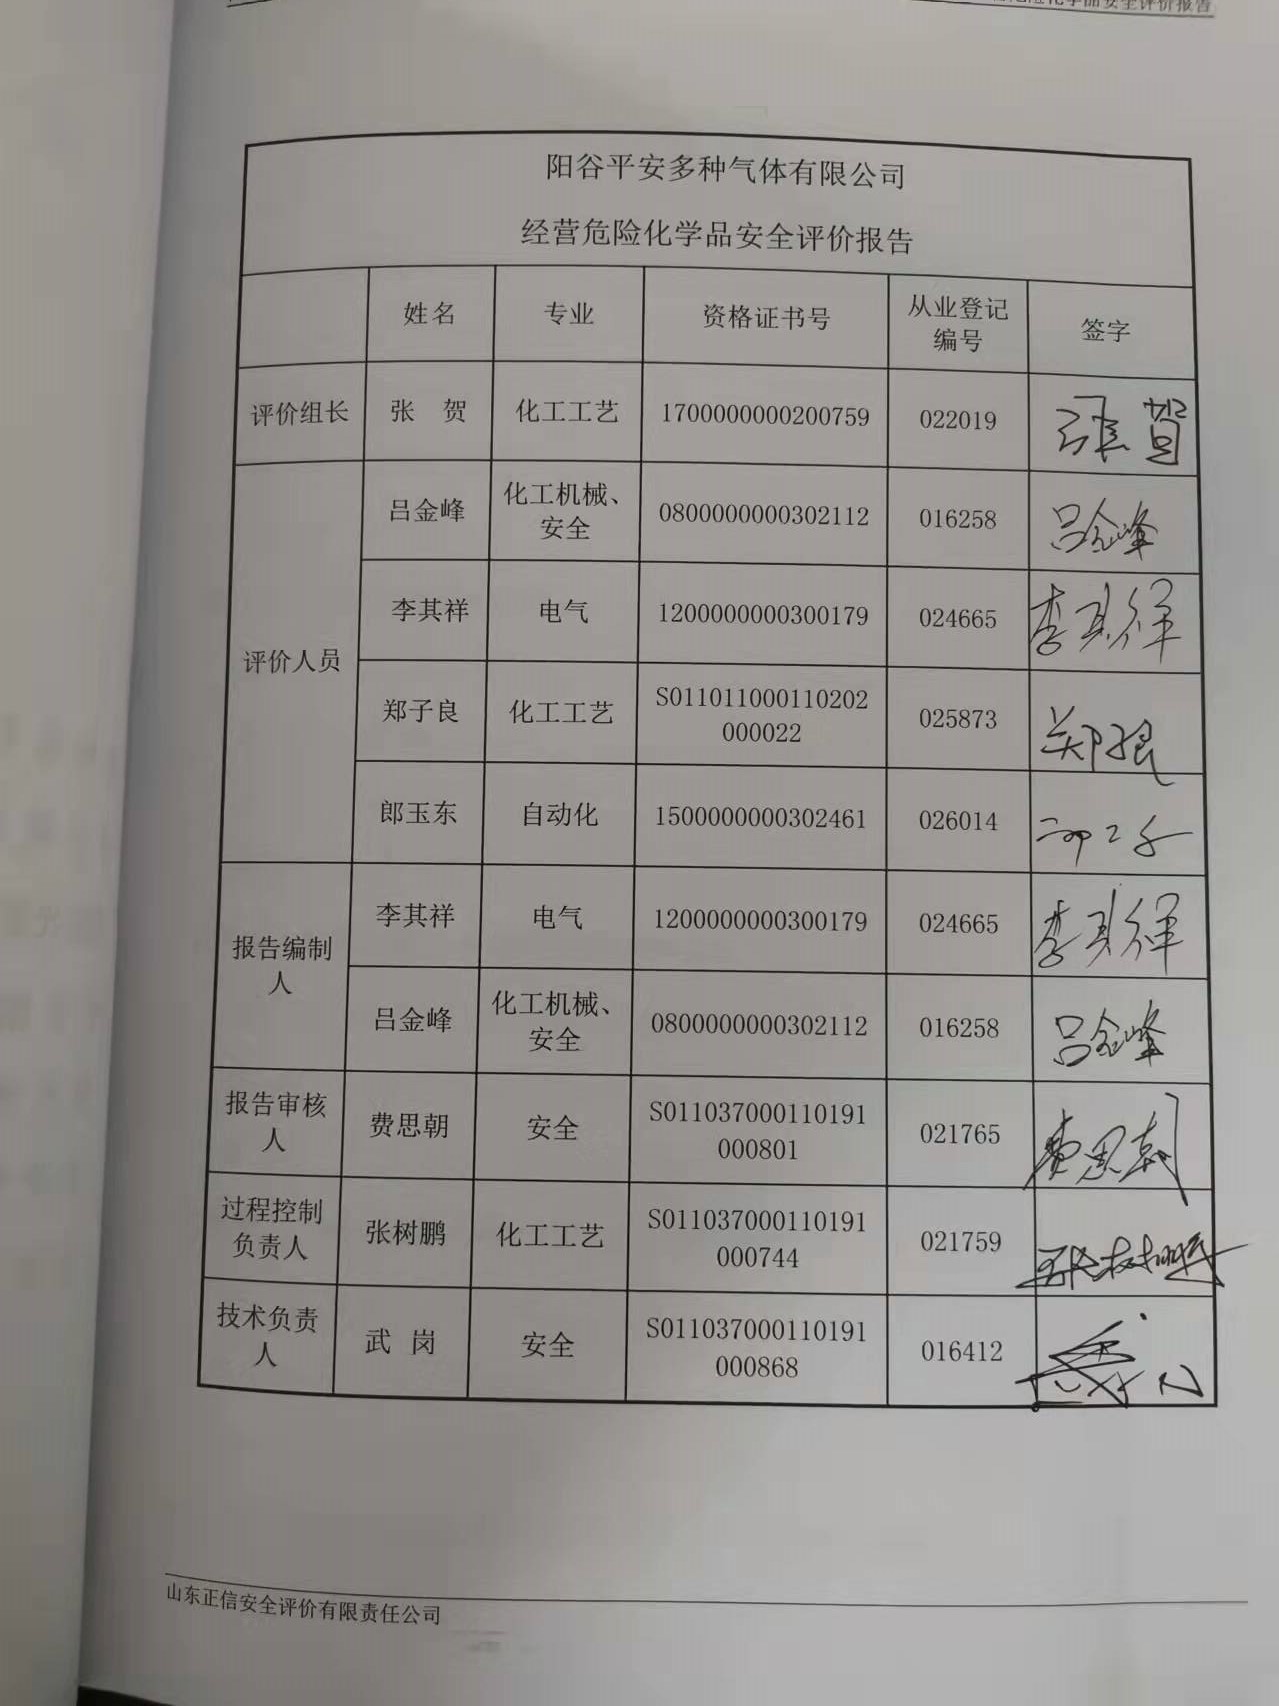 化学品安全评价报告
阳谷平安多种气体有限公司
经营危险化学品安全评价报告
姓名 专业 资格证书号 从业登记编号 签字
评价组长 张 贺 化工工艺 1700000000200759 022019 张贺
评价人员 吕金峰 化工机械、安全 0800000000302112 016258 吕金峰
李其祥 电气 1200000000300179 024665 李其祥
郑子良 化工工艺 S011011000110202000022 025873 郑子良
郎玉东 自动化 1500000000302461 026014
报告编制人 李其祥 电气 1200000000300179 024665 李其祥
吕金峰 化工机械、安全 0800000000302112 016258 吕金峰
报告审核人 费思朝 安全 S011037000110191000801 021765 费思朝
过程控制负责人 张树鹏 化工工艺 S011037000110191000744 021759 张树鹏
技术负责人 武 岗 安全 S011037000110191000868 016412
山东正信安全评价有限责任公司